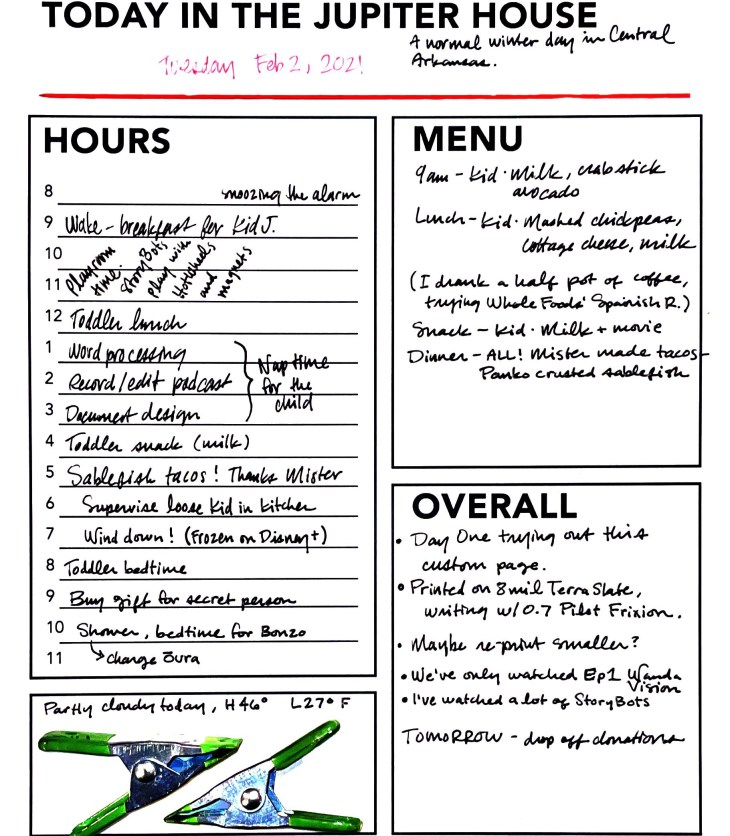 TODAY IN THE JUPITER HOUSE
A normal winter day in Central
Arkansas.
Tuesday Feb 2, 2021
HOURS
8 snoozing the alarm
9 Wake - breakfast for Kid J.
10
11
Playroom
time.
StoryBots
Play with
Hotwheels
and
magnets
12 Toddler lunch
1 Word processing
2 Record/edit podcast
3 Document design
Nap time
for the
child
4 Toddler snack (milk)
5 Sablefish tacos! Thanks Mister
6 Supervise loose Kid in kitchen
7 Wind down! (Frozen on Disney+)
8 Toddler bedtime
9 Buy gift for secret person
10 Shower, bedtime for Bonzo
11 change Oura
Partly cloudy today, H 46° L 27° F
MENU
9am - Kid · Milk, crabstick
avocado
Lunch - Kid · Mashed chickpeas,
cottage cheese, milk
(I drank a half pot of coffee,
trying Whole Foods' Spanish R.)
Snack - Kid · Milk + movie
Dinner - ALL! Mister made tacos -
Panko crusted sablefish
OVERALL
• Day One trying out this
custom page.
• Printed on 8 mil TerraSlate,
writing w/ 0.7 Pilot Frixion.
• Maybe re-print smaller?
• We've only watched Ep1 Wanda
Vision
• I've watched a lot of StoryBots
TOMORROW - drop off donations